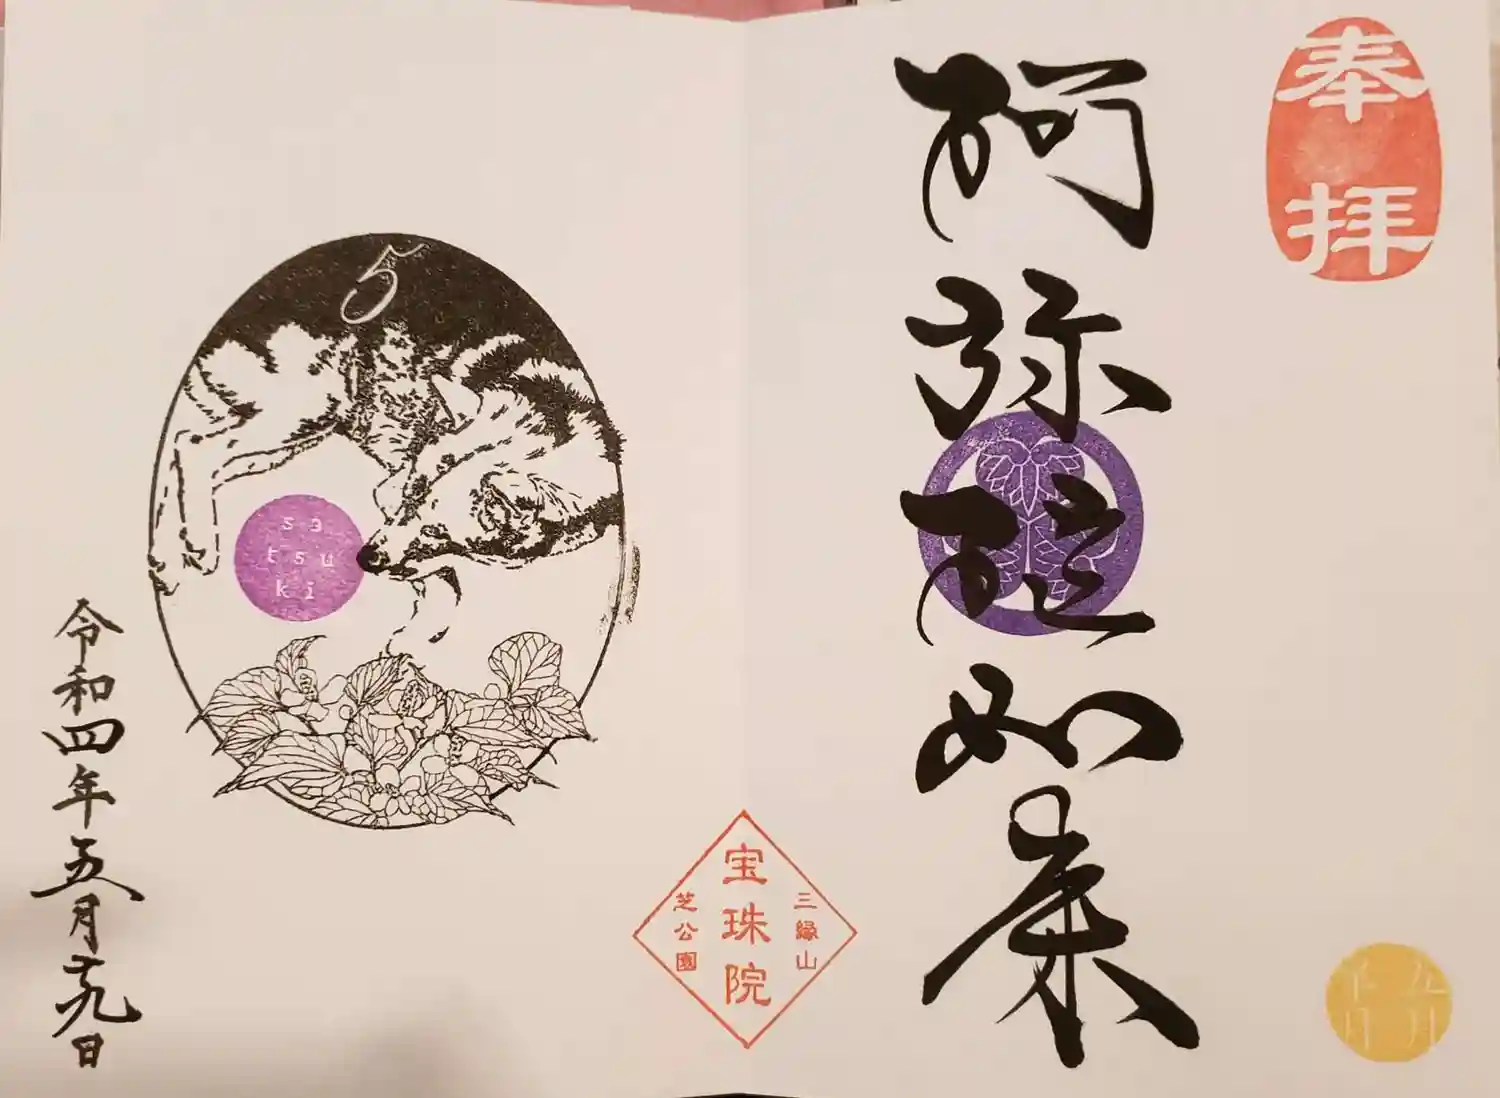 奉拝
阿弥陀如来
三縁山
宝珠院
芝公園
5
sa
tsu
ki
令和四年五月十九日